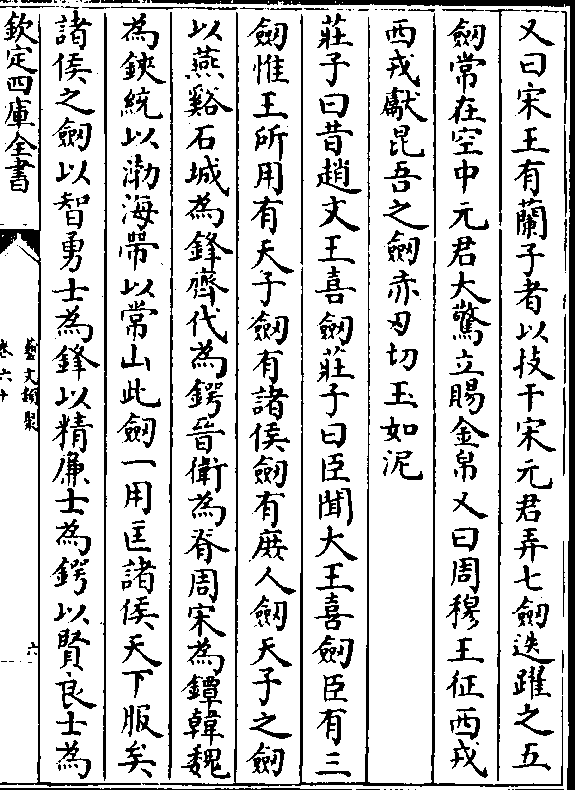 又曰宋王有蘭子者以技干宋元君弄七劒迭躍之五
劒常在空中元君大驚立賜金帛又曰周穆王征西戎
西戎獻昆吾之劒赤刃切玉如泥
莊子曰昔趙文王喜劒莊子曰臣聞大王喜劒臣有三
劒惟王所用有天子劒有諸侯劒有庻人劒天子之劒
以燕谿石城為鋒齊代為鍔晉衛為脊周宋為鐔韓魏
為鋏統以渤海帶以常山此劒一用匡諸侯天下服矣
諸侯之劒以智勇士為鋒以精廉士為鍔以賢良士為
欽定四庫全書
藝文類聚
卷六十
六